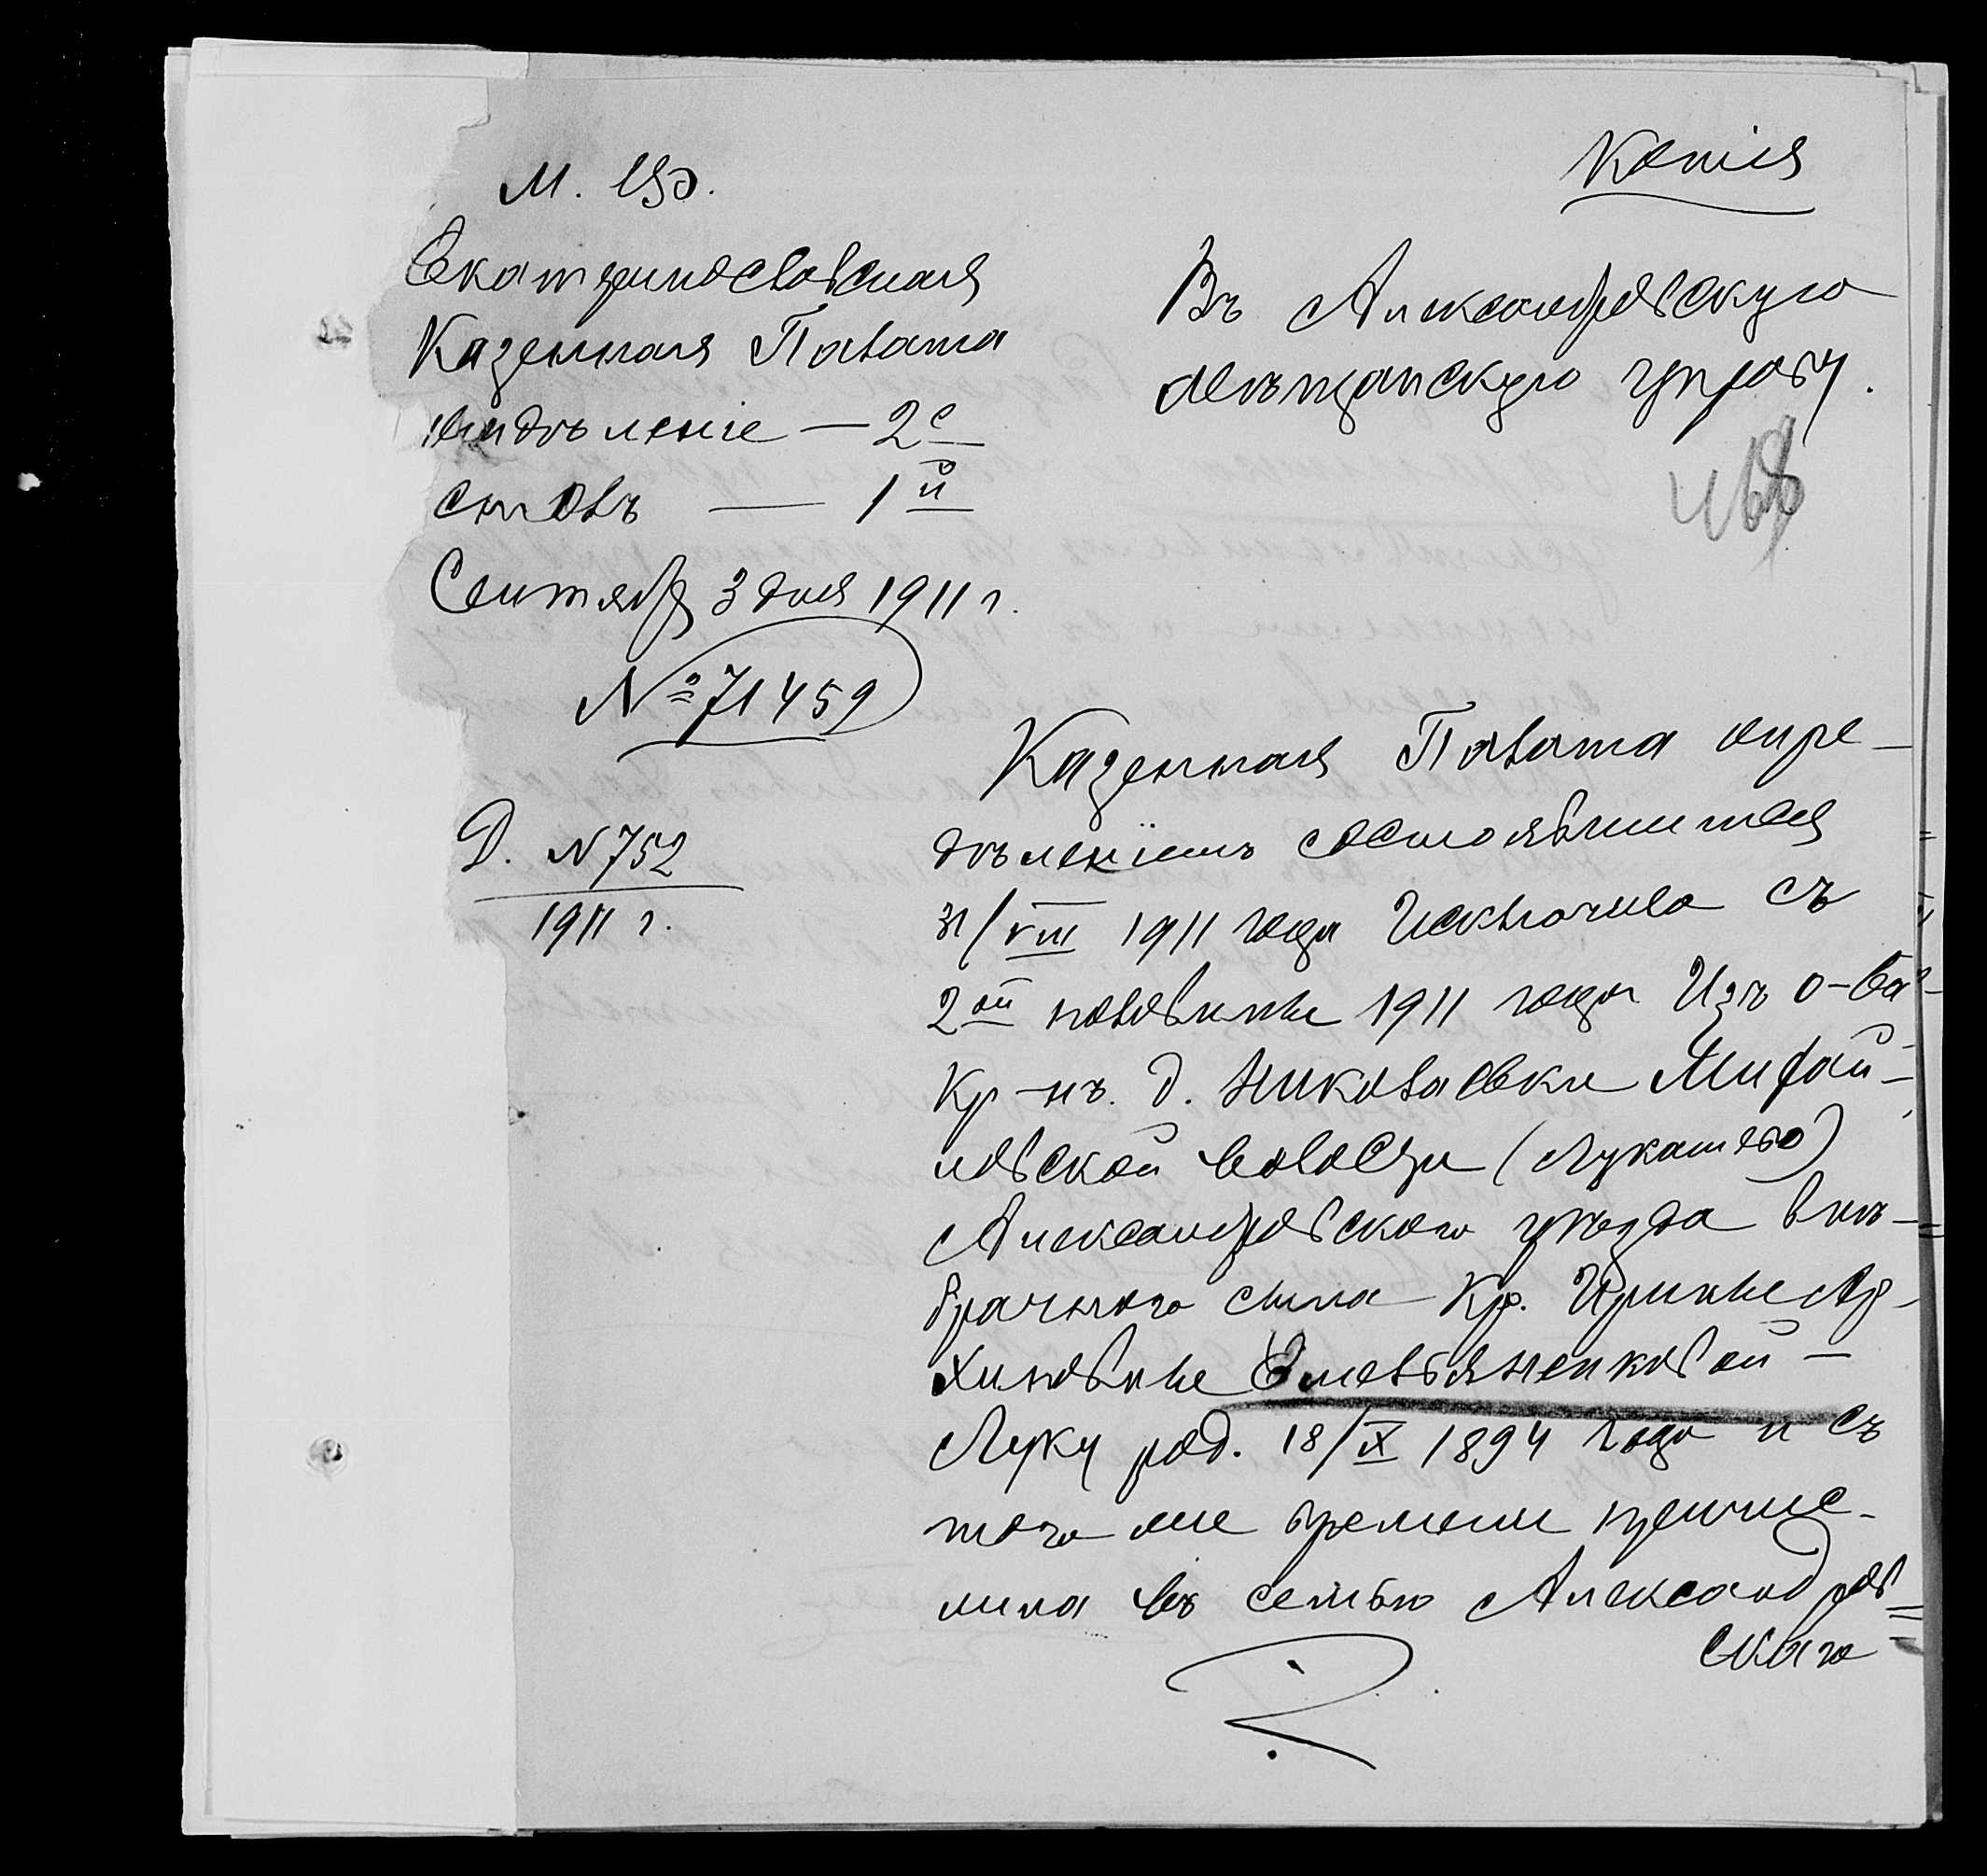 Копія
М. Ф.
Екатеринославская
Казенная Палата
отдѣленіе — 2е
столъ — 1й
Сентября 3 дня 1911 г.
№ 71459
Д. N 752
1911 г.
Въ Александровскую
мѣщанскую управу.
468
Казенная Палата опре-
дѣленіемъ состоявшимся
31/VIII 1911 года исключила съ
2ой половины 1911 года изъ о-ва
Кр-нъ д. Николаевки Михай-
ловской волости (Лукашево)
Александровского уѣзда внѣ-
брачного сына Кр. Ирины Ар-
хиповны Емельяненковой —
Луку род. 18/IX 1894 года и съ
того же времени причис-
лила въ семью Александров
скаго